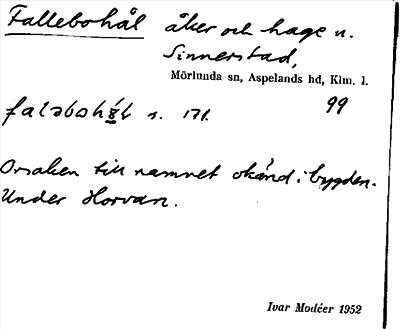 Fallebohål åker och hage u.
Sinnerstad,
Mörlunda sn, Aspelands hd, Klm. l.
99
s. 171.
Orsaken till namnet okänd i bygden.
Under Horvan.
Ivar Modéer 1952